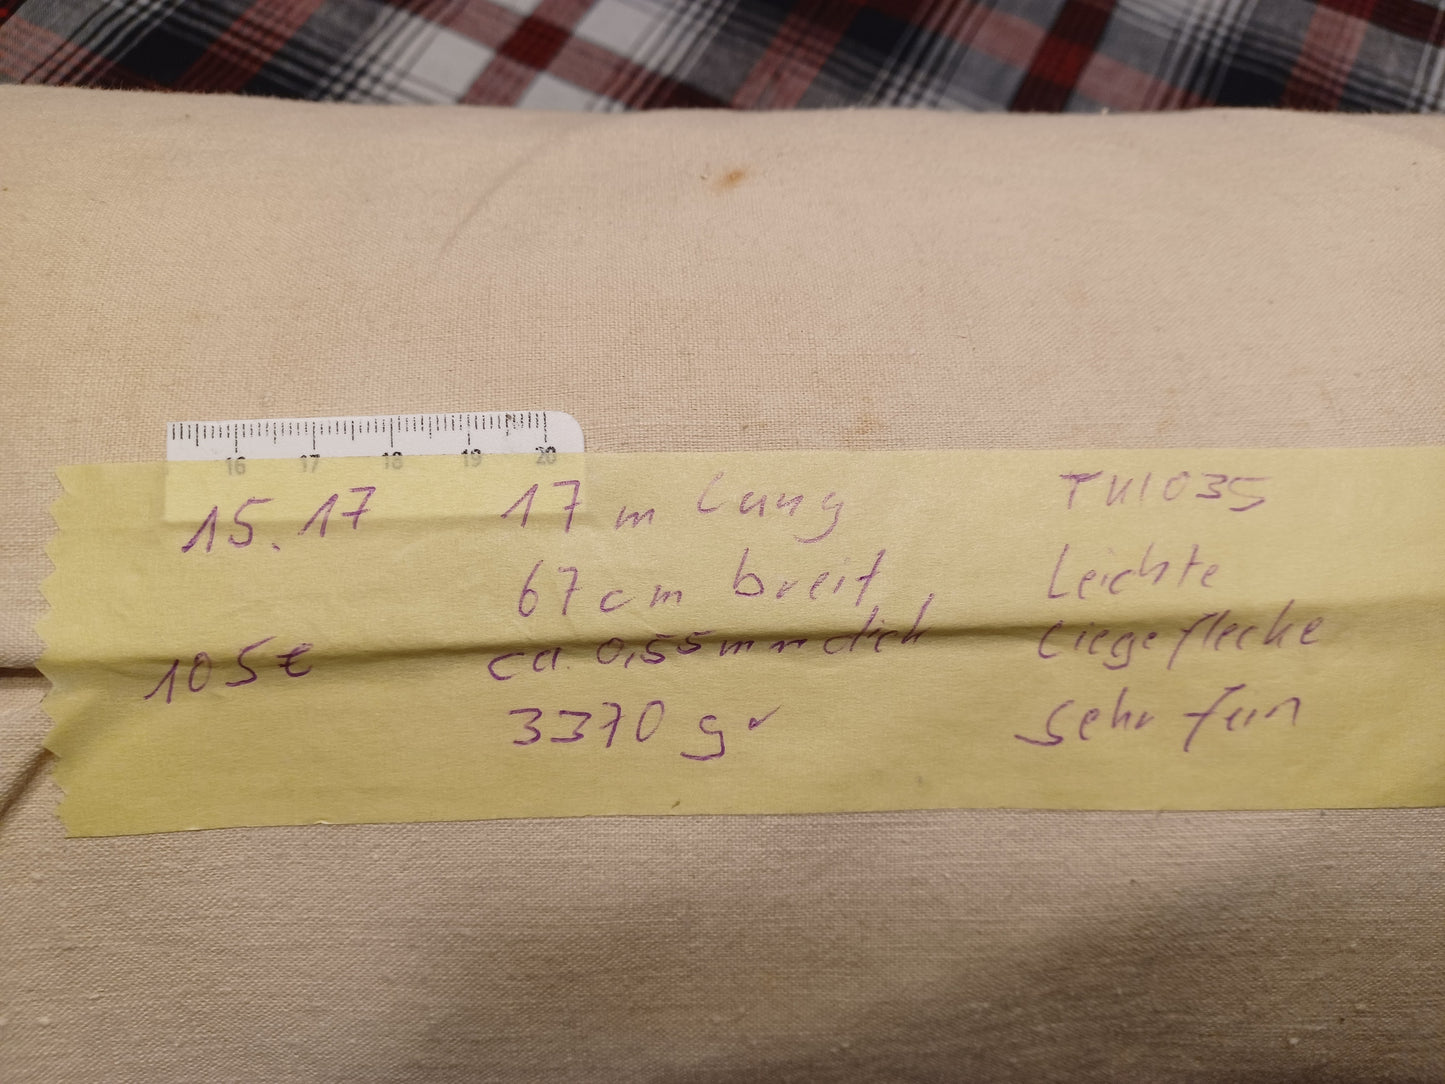 16 17 18 19 20
15.17 17 m lang TU1035
67 cm breit Leichte
105€ ca. 0,55 mm dick Liegeflecke
3370 gr sehr fein